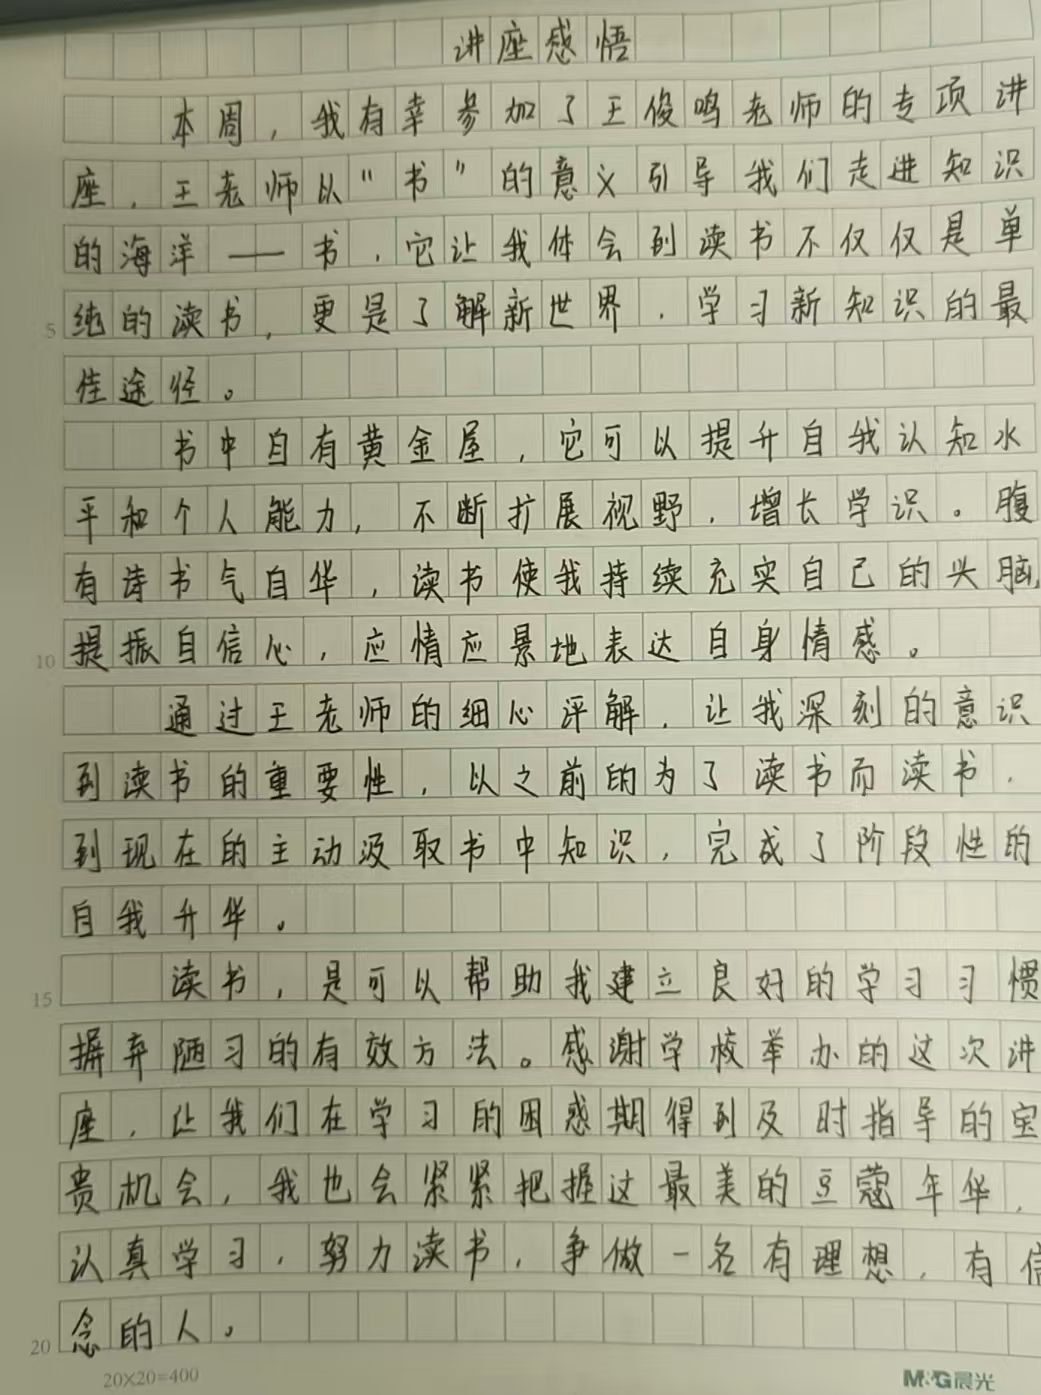 讲座感悟
本周，我有幸参加了王俊鸣老师的专项讲
座，王老师以“书”的意义引导我们走进知识
的海洋——书，它让我体会到读书不仅仅是单
5纯的读书，更是了解新世界，学习新知识的最
佳途径。
书中自有黄金屋，它可以提升自我认知水
平和个人能力，不断扩展视野，增长学识。腹
有诗书气自华，读书使我持续充实自己的头脑，
10提振自信心，应情应景地表达自身情感。
通过王老师的细心评解，让我深刻的意识
到读书的重要性，以之前的为了读书而读书，
到现在的主动汲取书中知识，完成了阶段性的
自我升华。
15读书，是可以帮助我建立良好的学习习惯
摒弃陋习的有效方法。感谢学校举办的这次讲
座，让我们在学习的困惑期得到及时指导的宝
贵机会，我也会紧紧把握这最美的豆蔻年华，
认真学习，努力读书，争做一名有理想，有信
20念的人。
20×20=400 M&G晨光